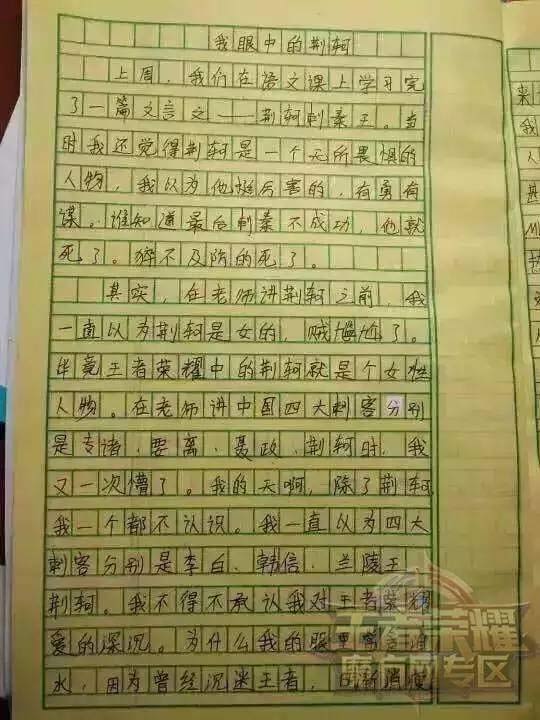 我眼中的荆轲
上周，我们在语文课上学习完
了一篇文言文——荆轲刺秦王。当
时我还觉得荆轲是一个无所畏惧的
人物，我以为他挺厉害的，有勇有
谋。谁知道最后刺秦不成功，他就
死了。猝不及防的死了。
其实，在老师讲荆轲之前，我
一直以为荆轲是女的，贼尴尬了。
毕竟王者荣耀中的荆轲就是个女性
人物。在老师讲中国四大刺客分别
是专诸，要离，聂政，荆轲时，我
又一次懵了。我的天啊，除了荆轲，
我一个都不认识。我一直以为四大
刺客分别是李白、韩信、兰陵王、
荆轲。我不得不承认我对王者荣耀
爱的深沉。为什么我的眼里常含泪
水，因为曾经沉迷王者，日渐消瘦
来
我
人
王者荣耀
专区